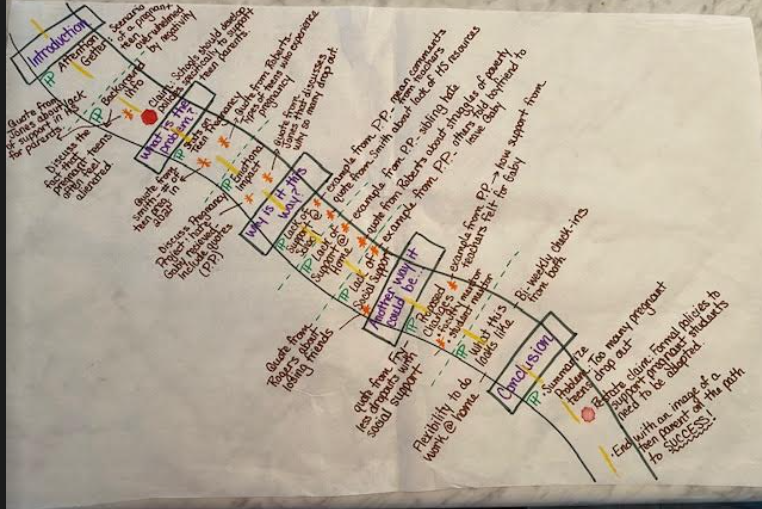 Introduction
TP
Attention
Getter
Scenario
of a pregnant
teen
overwhelmed
by negativity
TP
Background
info
Quote from
Jones about lack
of support in the
for parents
Claim: Schools should develop
policies specifically to support
teen parents.
Discuss the
fact that teens
pregnant
often feel
alienated
What is the
problem?
TP
Stats on
Teen Pregnancy
Quote from Roberts-
Types of teens who experience
pregnancy
Quote from
Smith- # of
teen preg. in
2021
TP
Emotional
impact
Quote from
Jones that discusses
why so many drop out
Discuss Pregnancy
Project; hate
Gaby recieved
include quotes
(P.P.)
Why is it this
way?
TP
Lack of
Support @
School
example from P.P. mean comments
from teachers
quote from Smith about lack of HS resources
TP
Lack of
Support @
home
example from P.P. sibling hate
quote from Roberts about struggles of poverty
TP
Lack of
Social Support
example from P.P. others told boyfriend to
leave Gaby
Quote from
Rogers about
losing friends
Another way it
could be...
TP
Proposed
Changes
• faculty mentor
• student mentor
example from P.P. → love support from
teachers felt for Gaby
quote from Fry
less dropouts with
social support
TP
what this
looks like
Bi-weekly check-ins
from both
Flexibility to do
work @ home
Conclusion
TP
Summarize
Problem: Too many pregnant
teens drop out
Restate claim: Formal policies to
support pregnant students
need to be adopted.
- End with an image of a
teen parent on the path
to SUCCESS!